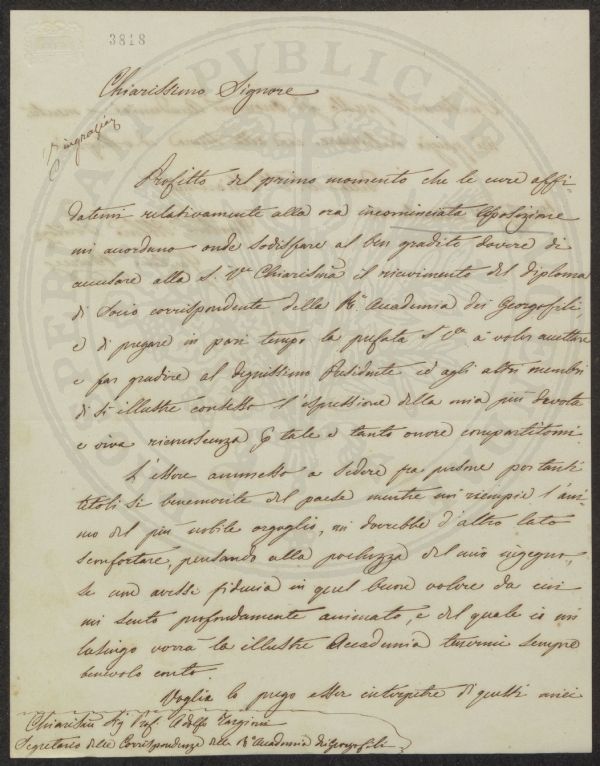 3818
Chiarissimo Signore
Ringrazia
Profitto del primo momento che le cure affi-
datemi relativamente alla ora incominciata Esposizione
mi accordano onde sodisfare al ben gradito dovere di
accusare alla S. Vra Chiarisma il ricevimento del diploma
di Socio corrispondente della Rle Accademia dei Georgofili,
e di pregare in pari tempo la prefata S. Vra a voler accettare
e far gradire al Degnissimo Presidente ed agli altri membri
di sì illustre consesso l'espressione della mia più devota
e viva riconoscenza p tale e tanto onore compartitomi.
L'essere ammesso a sedere fra persone per tanti
titoli sì benemerite del paese mentre mi riempie l'ani-
mo del più nobile orgoglio, mi dovrebbe d'altro lato
sconfortare, pensando alla pochezza del mio ingegno,
se non avessi fiducia in quel buon volere da cui
mi sento profondamente animato, e del quale io mi
lusingo vorrà la illustre Accademia tenermi sempre
benevolo conto.
Voglia la prego esser interpetre di questi miei
Chiarissmo Sig Prof. Adolfo Targioni
Segretario delle Corrispondenze della Rle Accademia dei Georgofili
PUBLICAE
PROSPERITATI